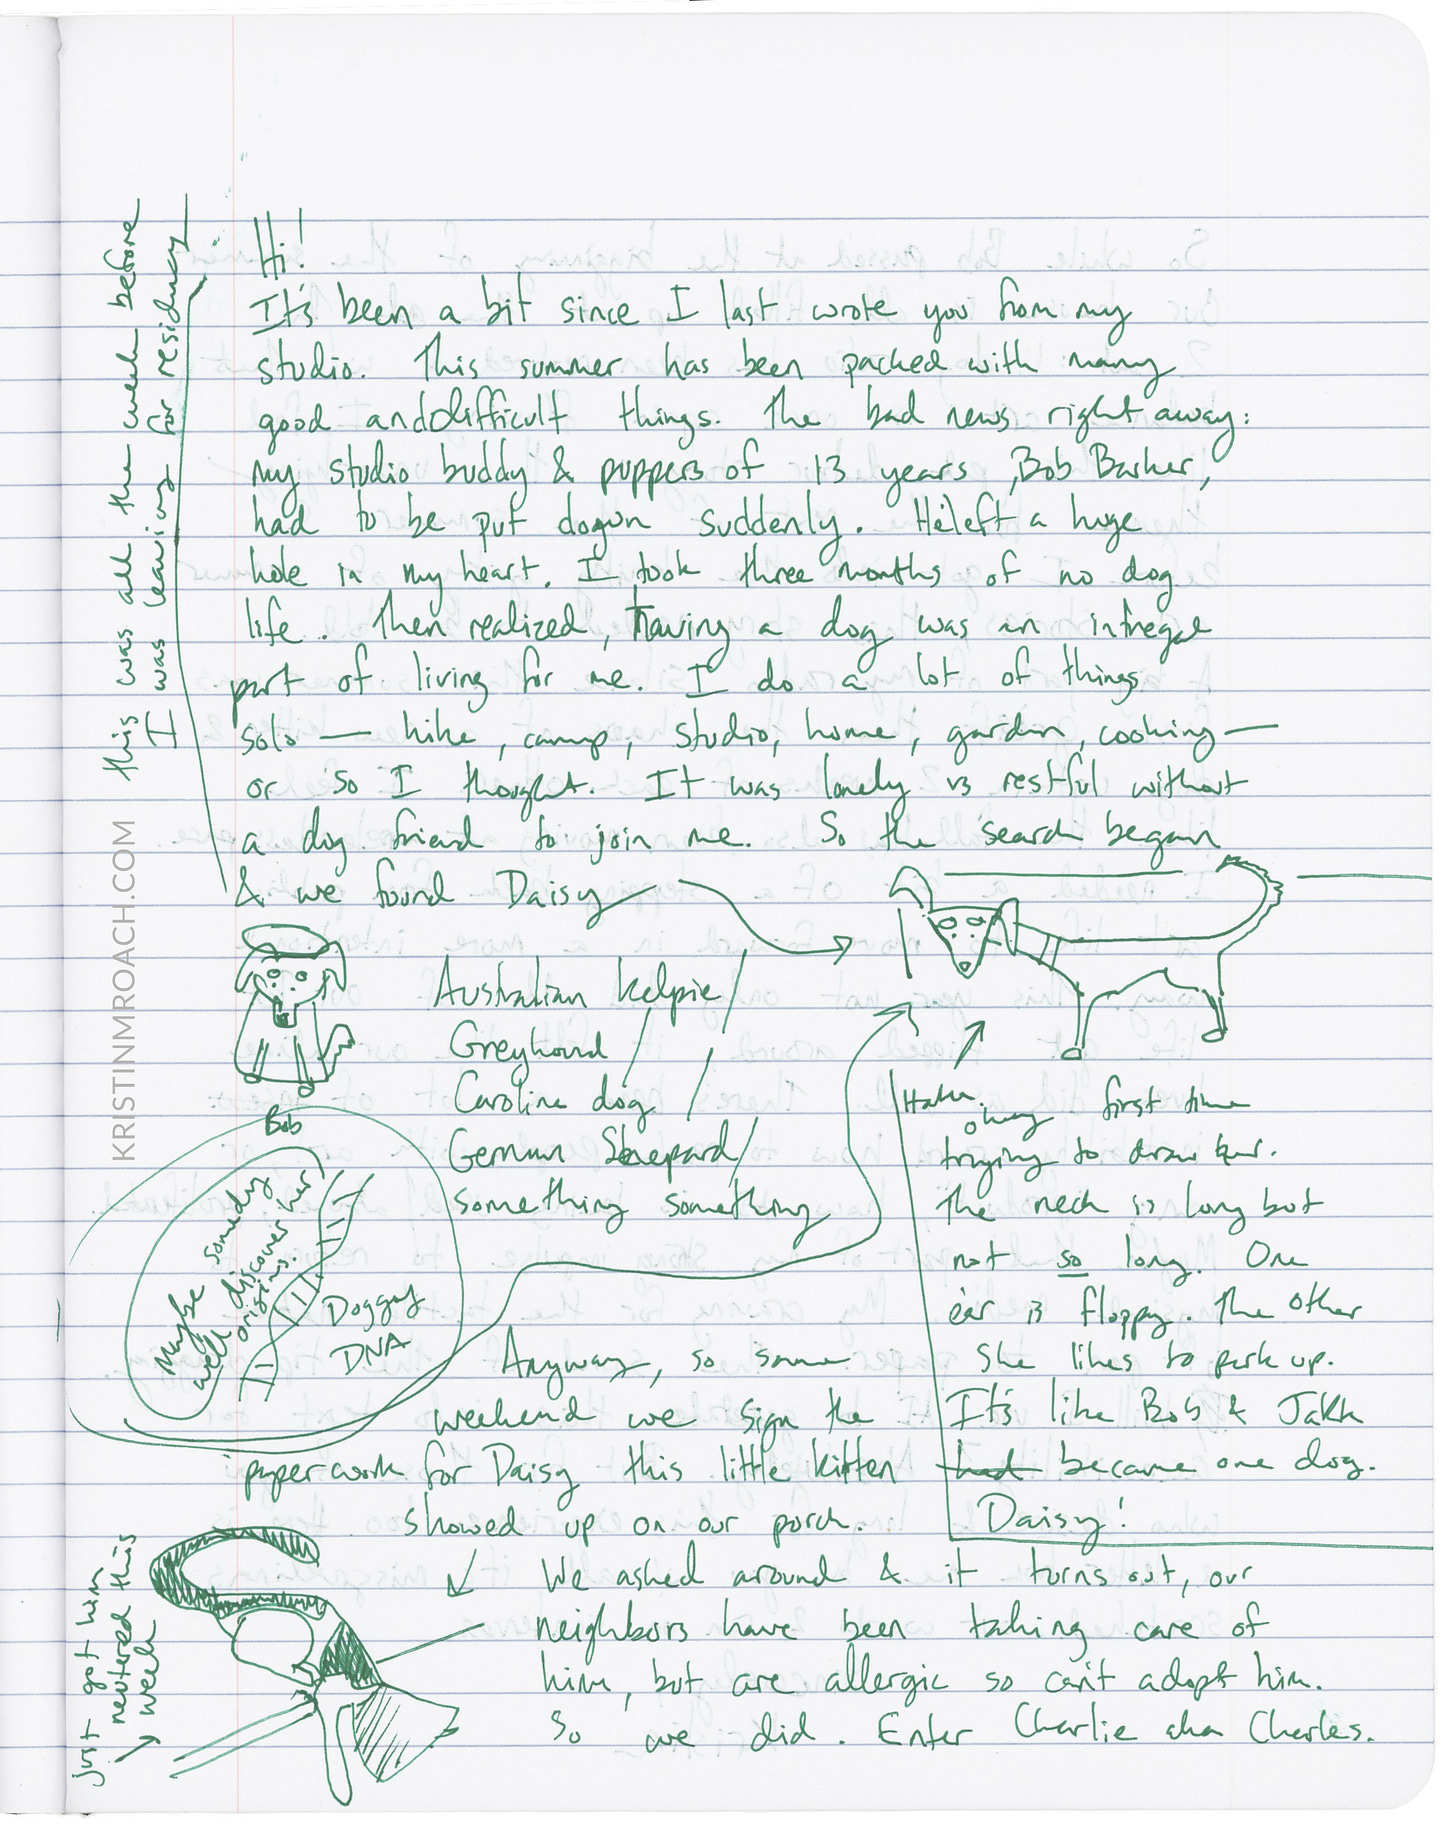 Hi!
It's been a bit since I last wrote you from my
studio. This summer has been packed with many
good and difficult things. The bad news right away:
my studio buddy & puppers of 13 years, Bob Barker,
had to be put down suddenly. He left a huge
hole in my heart. I took three months of no dog
life. Then realized, having a dog was an integral
part of living for me. I do a lot of things
solo — hike, camp, studio, home, garden, cooking —
or so I thought. It was lonely vs restful without
a dog friend to join me. So the search began
& we found Daisy
This was all the week before
I was leaving for residency
KRISTINMROACH.COM
Bob
Australian Kelpie/
Greyhound/
Caroline dog/
German Shepard/
something something
Maybe someday
we'll discover her
origins.
Doggy
DNA
Haha.
okay first time
trying to draw her.
The neck is long but
not so long. One
ear is floppy. The other
she likes to perk up.
It's like Bob & Jakk
had became one dog.
Daisy!
Anyway, so same
weekend we sign the
paperwork for Daisy this little kitten
showed up on our porch.
We asked around & it turns out, our
neighbors have been taking care of
him, but are allergic so can't adopt him.
So we did. Enter Charlie aka Charles.
just got him
neutered this
week